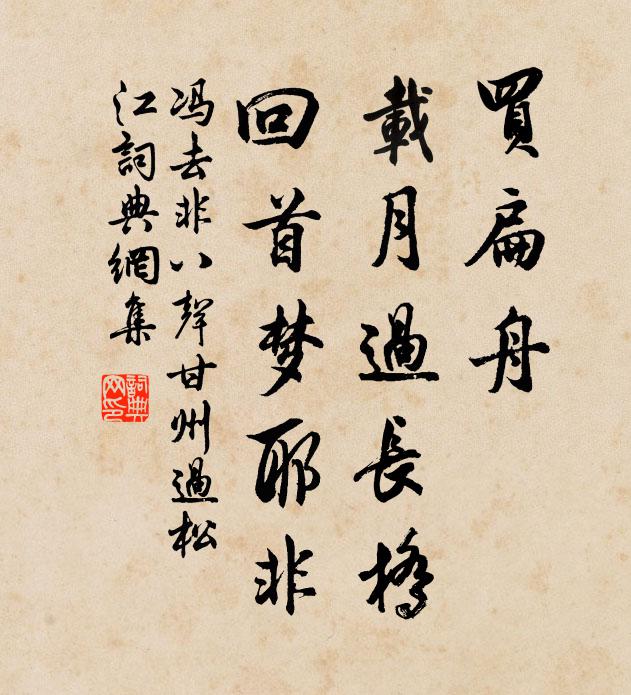 買扁舟
載月過長橋
回首梦耶非
冯去非八聲甘州過松
江詞典網集
詞典网印